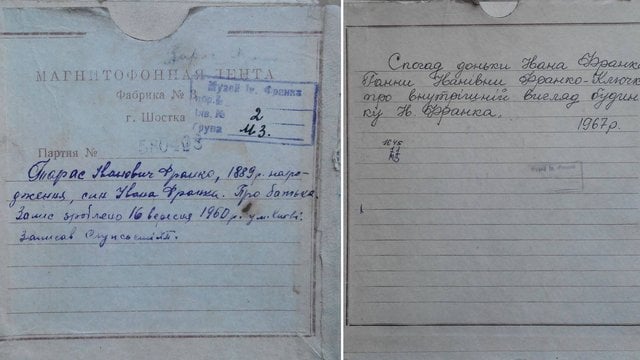 МАГНИТОФОННАЯ ЛЕНТА
Фабрика № 3
г. Шостка
Музей Ів. Франка
Інв. №
2
Група
М3.
Партия №
Тарас Іванович Франко, 1889 р. наро-
дження, син Івана Франка. Про батька.
Запис зроблено 16 вересня 1960 р. у м. Києві.
Записав
Спогад доньки Івана Франка
Ганни Іванівни Франко-Ключко
про внутрішній вигляд будин-
ку Ів. Франка.
1967 р.